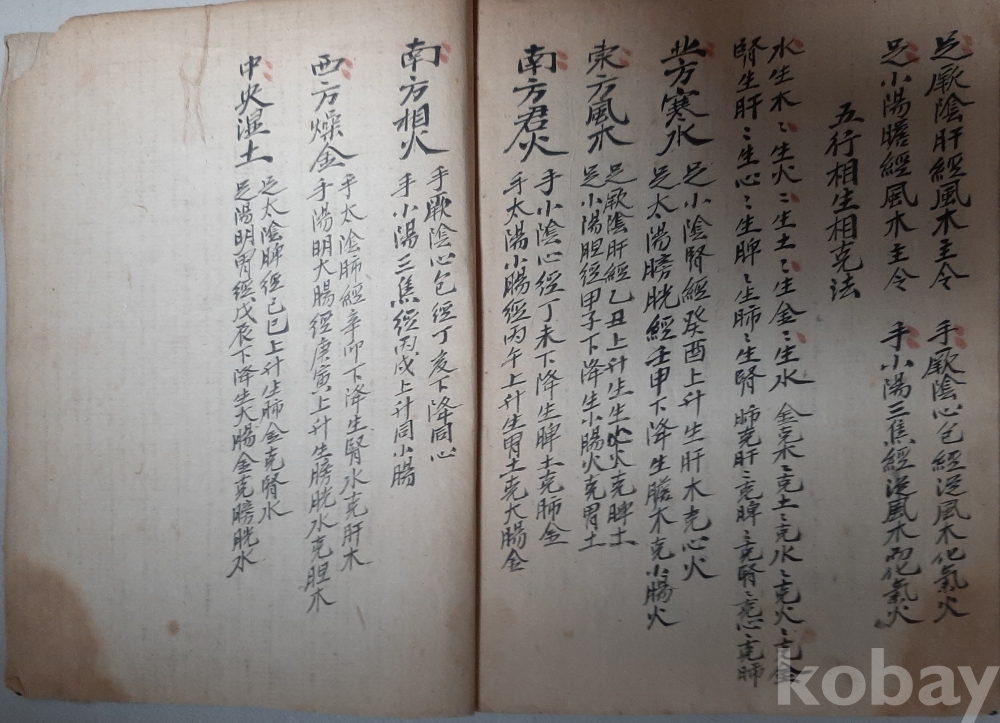 足厥陰肝經風木主令 手厥陰心包經従風木化氣火
足小陽膽經風木主令 手小陽三焦經従風木而化氣火
五行相生相克法
水生木〻生火〻生土〻生金〻生水 金克木〻克土〻克水〻克火〻克金
腎生肝〻生心〻生脾〻生肺〻生腎 肺克肝〻克脾〻克腎〻克心〻克肺
北方寒水 足小陰腎經癸酉上升生肝木克心火
足太陽膀胱經壬甲下降生膽木克小腸火
東方風木 足厥陰肝經乙丑上升生心火克脾土
足小陽胆經甲子下降生小腸火克胃土
南方君火 手小陰心經丁未下降生脾土克肺金
手太陽小腸經丙午上升生胃土克大腸金
南方相火 手厥陰心包經丁亥下降同心
手小陽三焦經丙戌上升同小腸
西方燥金 手太陰肺經辛卯下降生腎水克肝木
手陽明大腸經庚寅上升生膀胱水克胆木
中央湿土 足太陰脾經己巳上升生肺金克腎水
足陽明胃經戊辰下降生大腸金克膀胱水
kobay